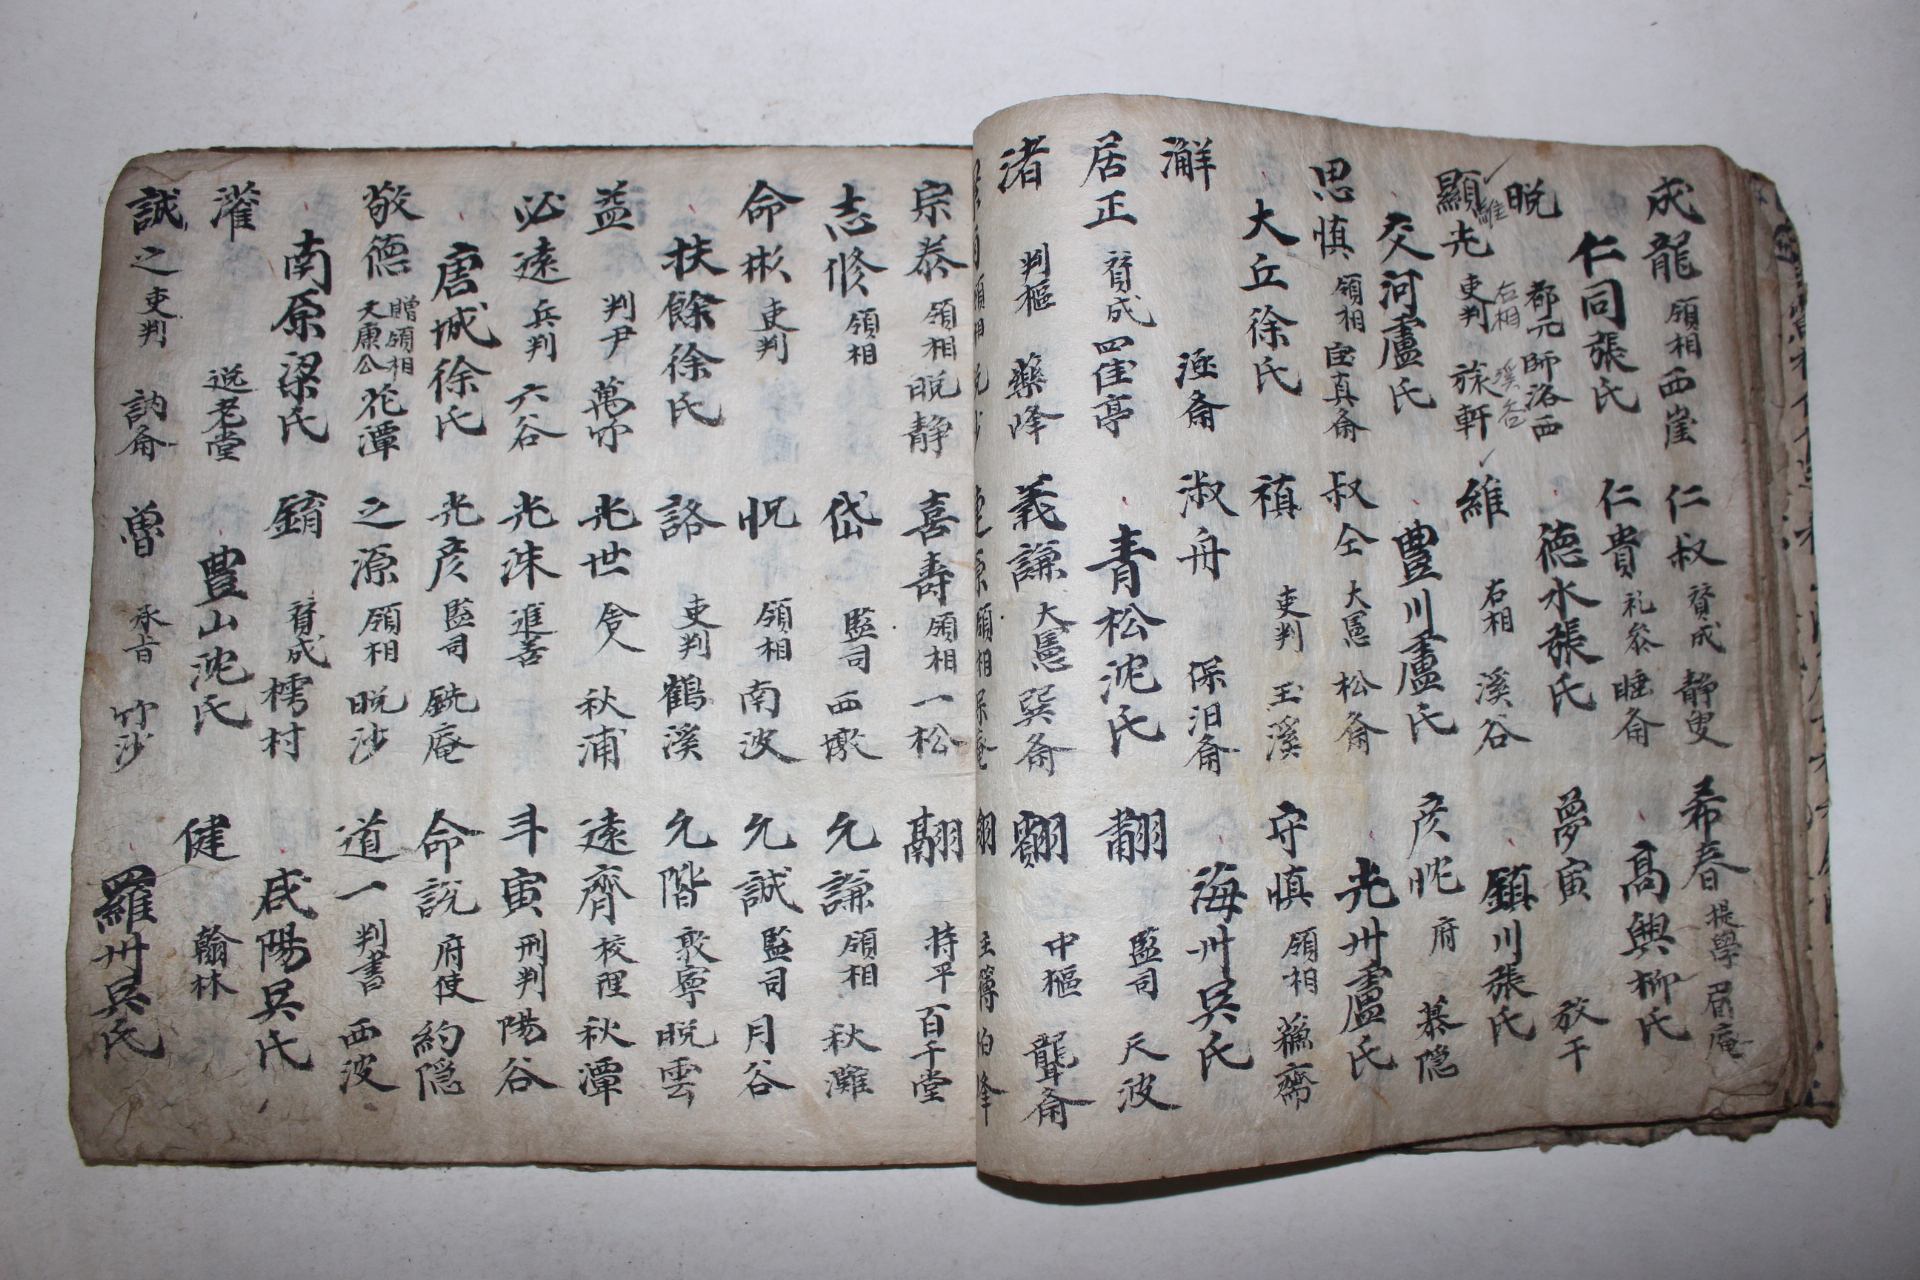 成龍 領相 西崖 仁叔 賛成 靜叟 希春 提學 眉庵
仁同張氏 仁貴 礼參 睡齋 高興柳氏
晩 都元師 洛西 德水張氏 夢寅 放于
維 右相 溪谷
顯光 吏判 旅軒 維 右相 溪谷 鎮川張氏
交河盧氏 豊川盧氏 彦 府 慕隐
思慎 領相 宝真齋 叔仝 大憲 松齋 光州盧氏
大丘徐氏 禛 吏判 玉溪 守慎 領相 蘓齋
淑舟 保汩齋 海州吳氏
居正 賛成 四佳亭 青松沈氏 監司 天波
渚 判樞 藥峰 義謙 大憲 巽齋 中樞 聾齋
景雨 領相 晩沙 連源 領相 保庵 翊 主簿 泊峰
宗泰 領相 晩静 喜壽 領相 一松 翮 持平 百千堂
志修 領相 岱 監司 西墩 允謙 領相 秋灘
命彬 吏判 悅 領相 南波 允誠 監司 月谷
扶餘徐氏 詻 吏判 鶴溪 允階 敦寧 晩雲
益 判尹 萬竹 光世 舍人 秋浦 達齊 校理 秋潭
必遠 兵判 六谷 光洙 進善 斗寅 刑判 陽谷
唐城徐氏 光彦 監司 銑庵 命說 府使 約隐
敬德 贈領相 文康公 花潭 之源 領相 晩沙 道一 判書 西波
南原梁氏 錥 賛成 樗村 咸陽吳氏
灌 退老堂 豊山沈氏 健 翰林
誠之 吏判 訥齋 曾 承旨 竹沙 羅州吳氏